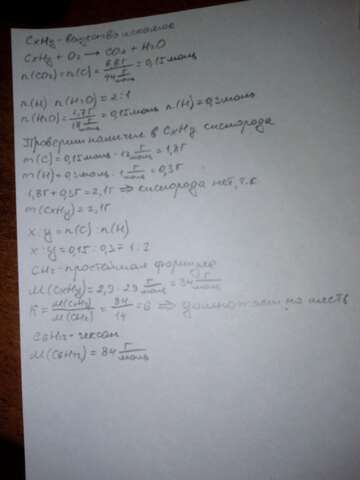 CxHy - вещество искомое
CxHy + O₂ → CO₂ + H₂O
n(CO₂) = n(C) = 6,6г / 44 г/моль = 0,15 моль
n(H) : n(H₂O) = 2:1
n(H₂O) = 2,7г / 18 г/моль = 0,15 моль n(H) = 0,3 моль
Проверим наличие в CxHy кислорода
m(C) = 0,15 моль · 12 г/моль = 1,8г
m(H) = 0,3 моль · 1 г/моль = 0,3г
1,8г + 0,3г = 2,1г ⇒ кислорода нет, т.к.
m(CxHy) = 2,1г
x : y = n(C) : n(H)
x : y = 0,15 : 0,3 = 1 : 2
CH₂ - простейшая формула
M(CxHy) = 2,9 · 29 г/моль = 84 г/моль
K = M(CxHy) / M(CH₂) = 84 / 14 = 6 ⇒ домножаем на шесть
C₆H₁₂ - гексан
M(C₆H₁₂) = 84 г/моль